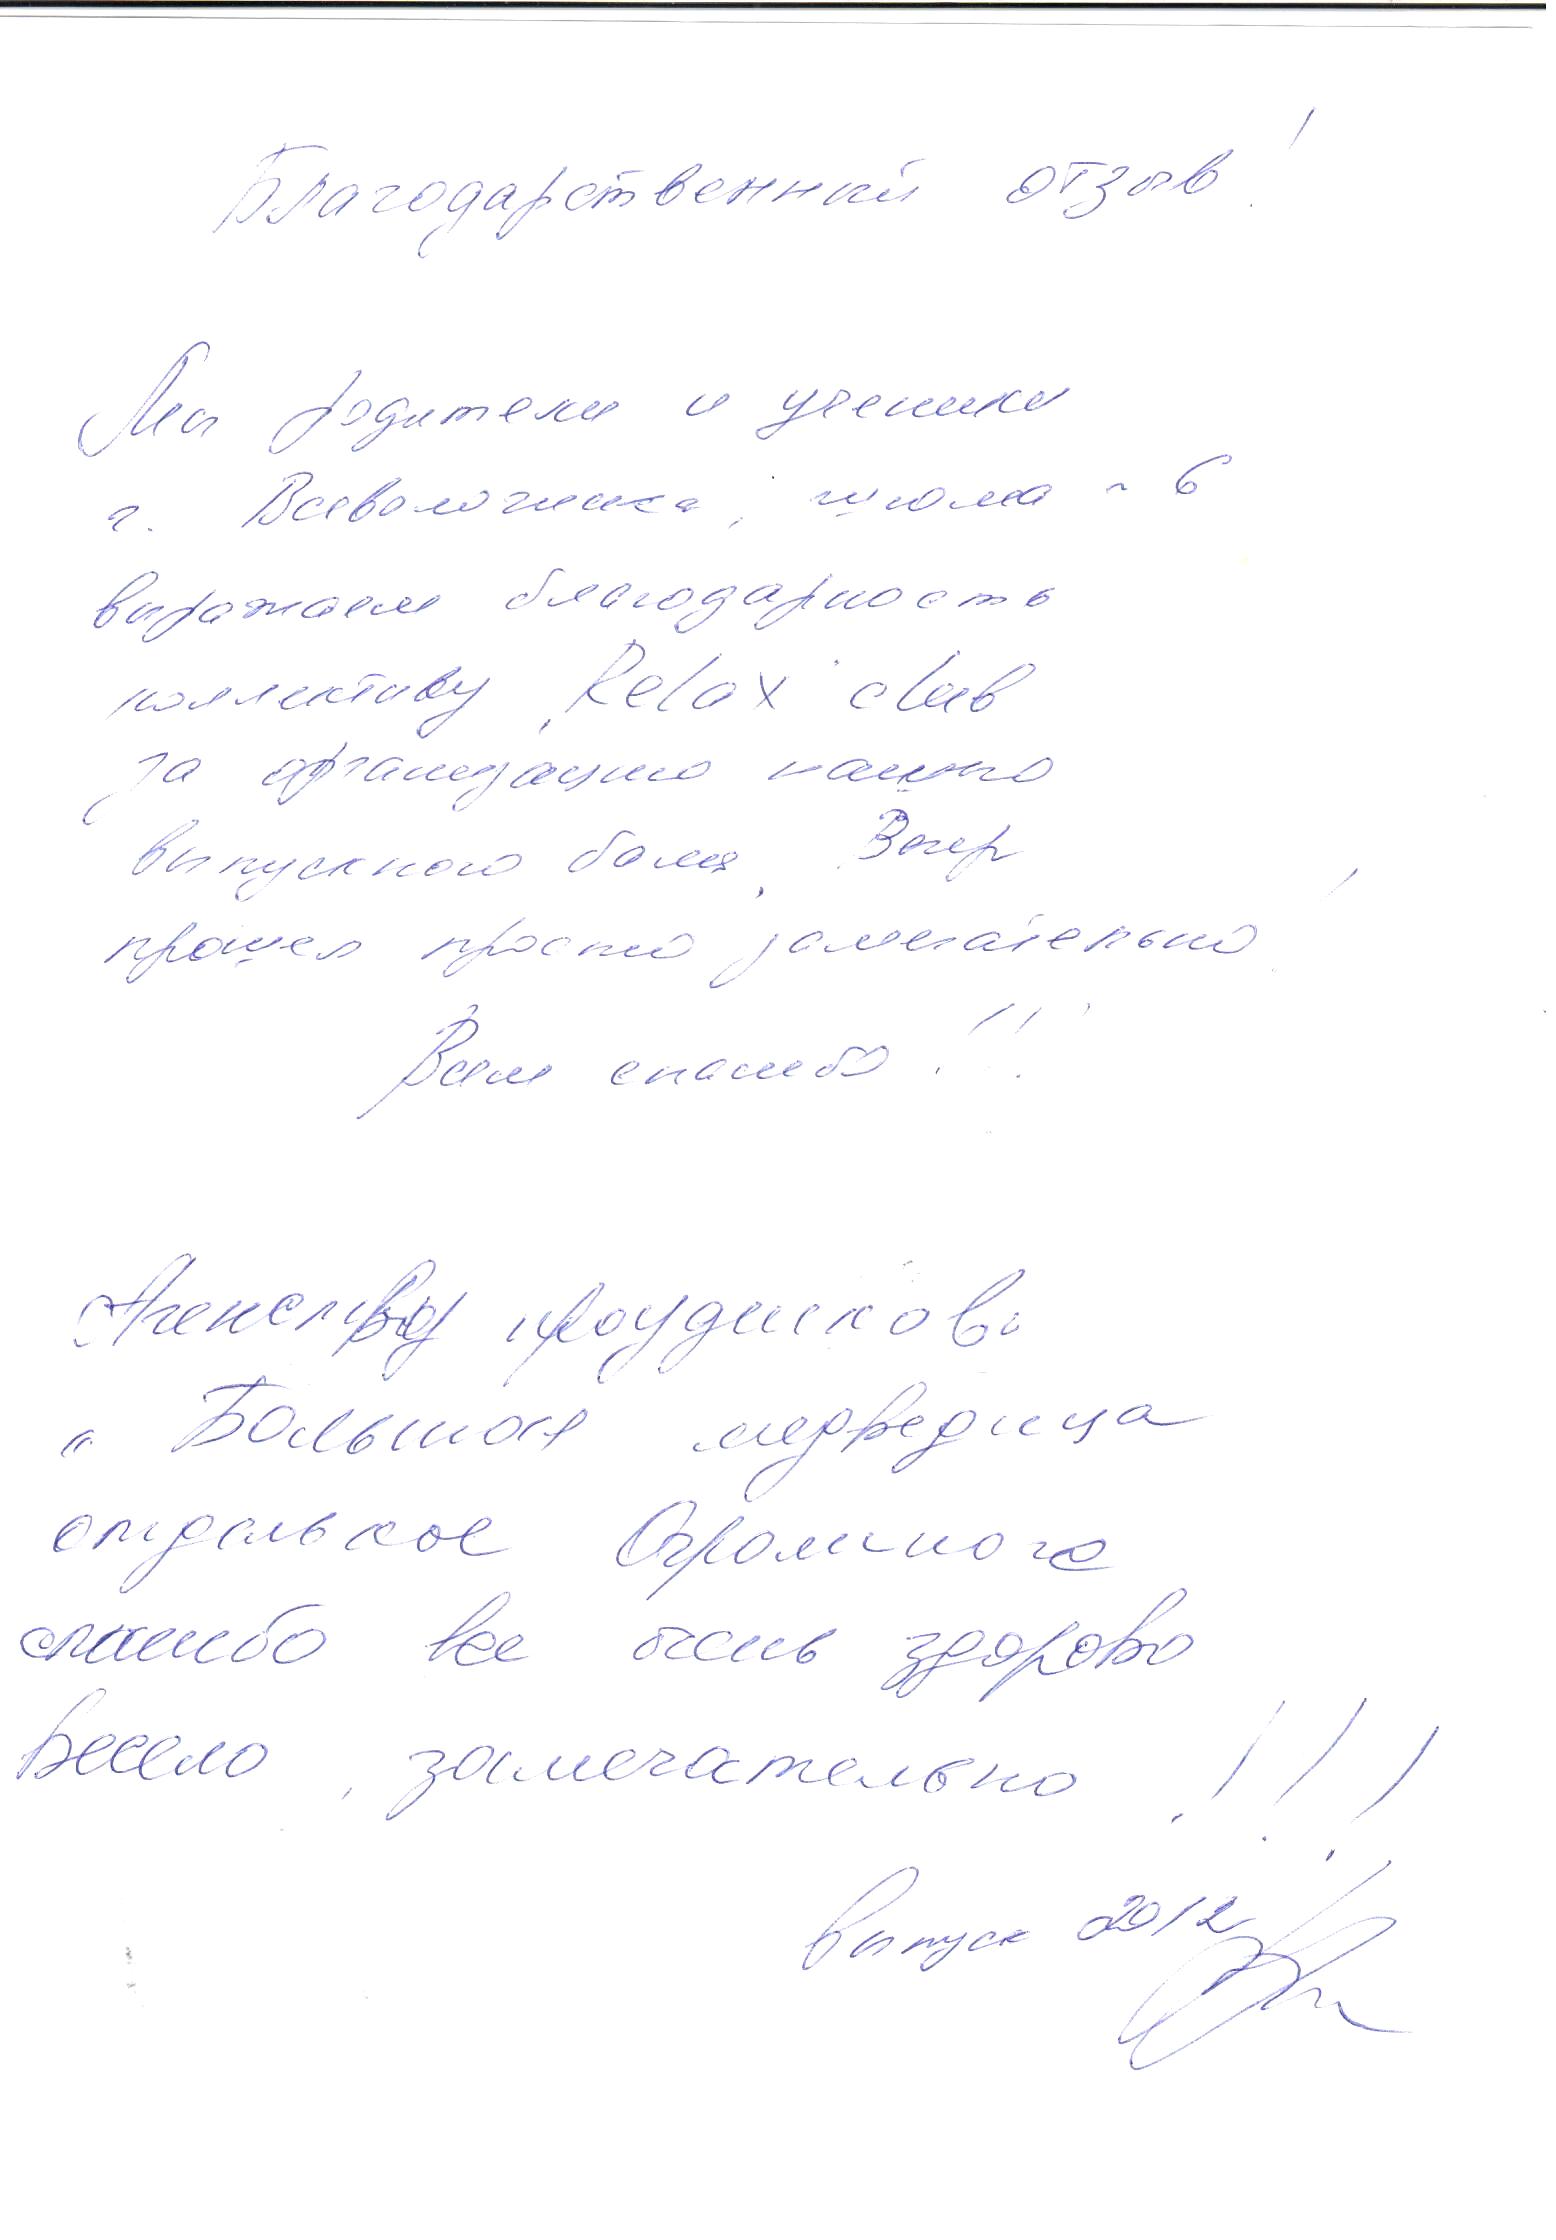 Благодарственный отзыв!
Мы родители и ученики
г. Всеволожска, школа 6
выражаем благодарность
коллективу Relax club
за организацию нашего
выпускного бала. Вечер
прошел просто замечательно!
Всем спасибо!!!
Агенству праздников
"Большая медведица
отдельное Огромного
спасибо все очень здорово
весело, замечательно!!!
выпуск 2012